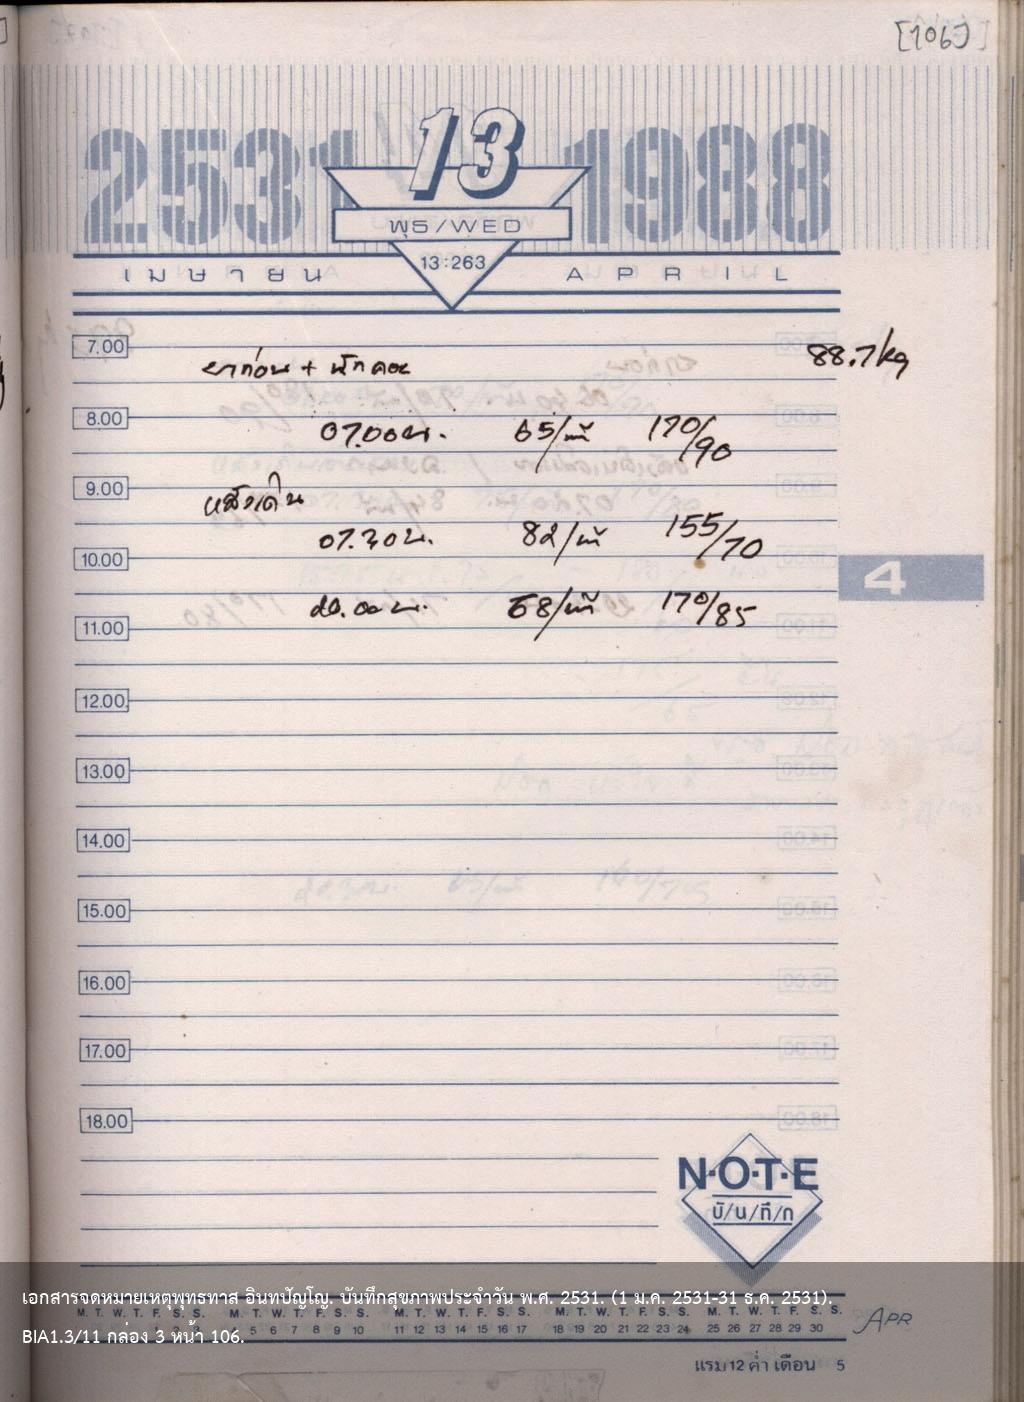 [106]
2531 13 1988
พุธ/WED
13:263
เมษายน APRIL
7.00
ยาก่อน + 88.7 kg
8.00
07.00 น. 65/นาที 170/90
9.00
หลังเดิน
07.30 น. 82/นาที 155/70
10.00
4
20.00 น. 68/นาที 170/85
11.00
12.00
13.00
14.00
15.00
16.00
17.00
18.00
N·O·T·E
บั/น/ทึ/ก
เอกสารจดหมายเหตุพุทธทาส อินทปัญโญ. บันทึกสุขภาพประจำวัน พ.ศ. 2531. (1 ม.ค. 2531-31 ธ.ค. 2531).
M. T. W. T. F. S. S. M. T. W. T. F. S. S. M. T. W. T. F. S. S. M. T. W. T. F. S. S. M. T. W. T. F. S. S.
BIA1.3/11 กล่อง 3 หน้า 106.
5 6 7 8 9 10 11 12 13 14 15 16 17 18 19 20 21 22 23 24 25 26 27 28 29 30
APR
แรม 12 ค่ำ เดือน 5